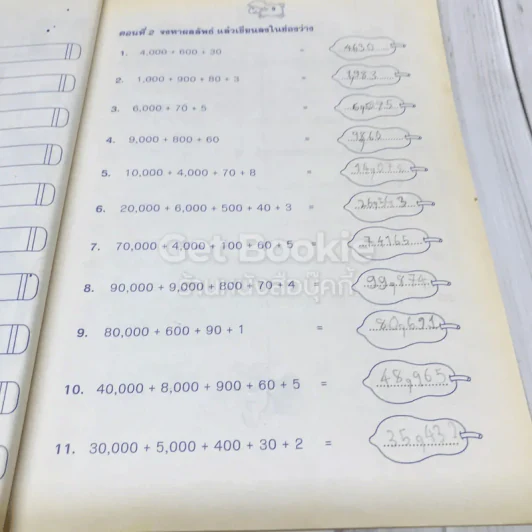 ตอนที่ 2 จงหาผลลัพธ์ แล้วเขียนลงในช่องว่าง
1. 4,000 + 600 + 30 = 4630
2. 1,000 + 900 + 80 + 3 = 1,983
3. 6,000 + 70 + 5 = 6,075
4. 9,000 + 800 + 60 = 9860
5. 10,000 + 4,000 + 70 + 8 =
6. 20,000 + 6,000 + 500 + 40 + 3 =
7. 70,000 + 4,000 + 100 + 60 + 5 = 74165
Get Bookie
ร้านหนังสือบุ๊คกี้
8. 90,000 + 9,000 + 800 + 70 + 4 = 99,874
9. 80,000 + 600 + 90 + 1 = 80,691
10. 40,000 + 8,000 + 900 + 60 + 5 = 48,965
11. 30,000 + 5,000 + 400 + 30 + 2 = 35,432